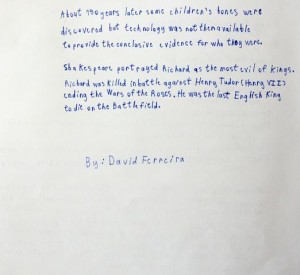 About 190 years later some children's bones were
discovered but technology was not then available
to provide the conclusive evidence for who they were.
Shakespeare portrayed Richard as the most evil of kings.
Richard was killed in battle against Henry Tudor (Henry VII)
ending the Wars of the Roses. He was the last English King
to die on the Battlefield.
By: David Ferreira